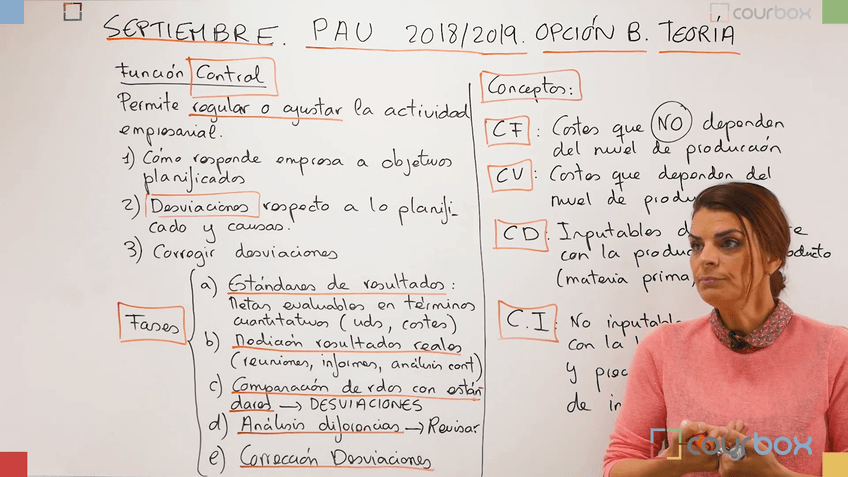 courbox
SEPTIEMBRE. PAU 2018/2019. OPCIÓN B. TEORÍA
Función Control
Permite regular o ajustar la actividad
empresarial.
1) Cómo responde empresa a objetivos
planificados
2) Desviaciones respecto a lo planifi-
cado y causas.
3) Corregir desviaciones
Fases
a) Estándares de resultados:
Metas evaluables en términos
cuantitativos (uds, costes)
b) Medición resultados reales
(reuniones, informes, análisis cont)
c) Comparación de rdos con están
dares → DESVIACIONES
d) Análisis diferencias → Revisar
e) Corrección Desviaciones
Conceptos:
CF: Costes que NO dependen
del nivel de producción
CV: Costes que dependen del
nivel de
CD: Inputables
con la producto
(materia prima,
C.I: No inputable
con la
y
de
courbox